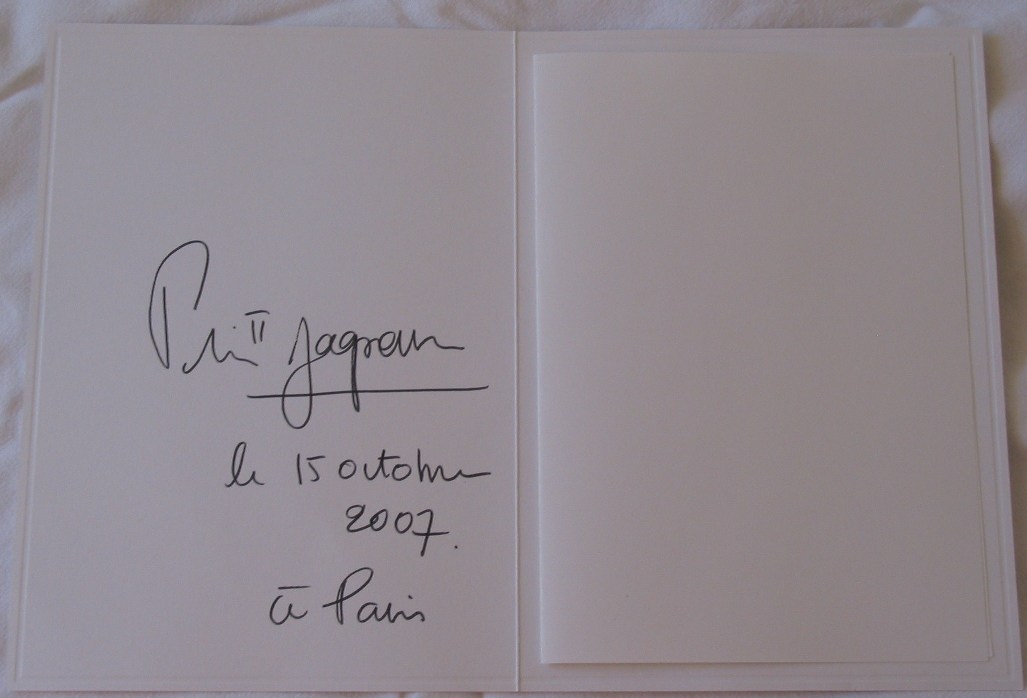 Jagran
le 15 octobre
2007.
à Paris